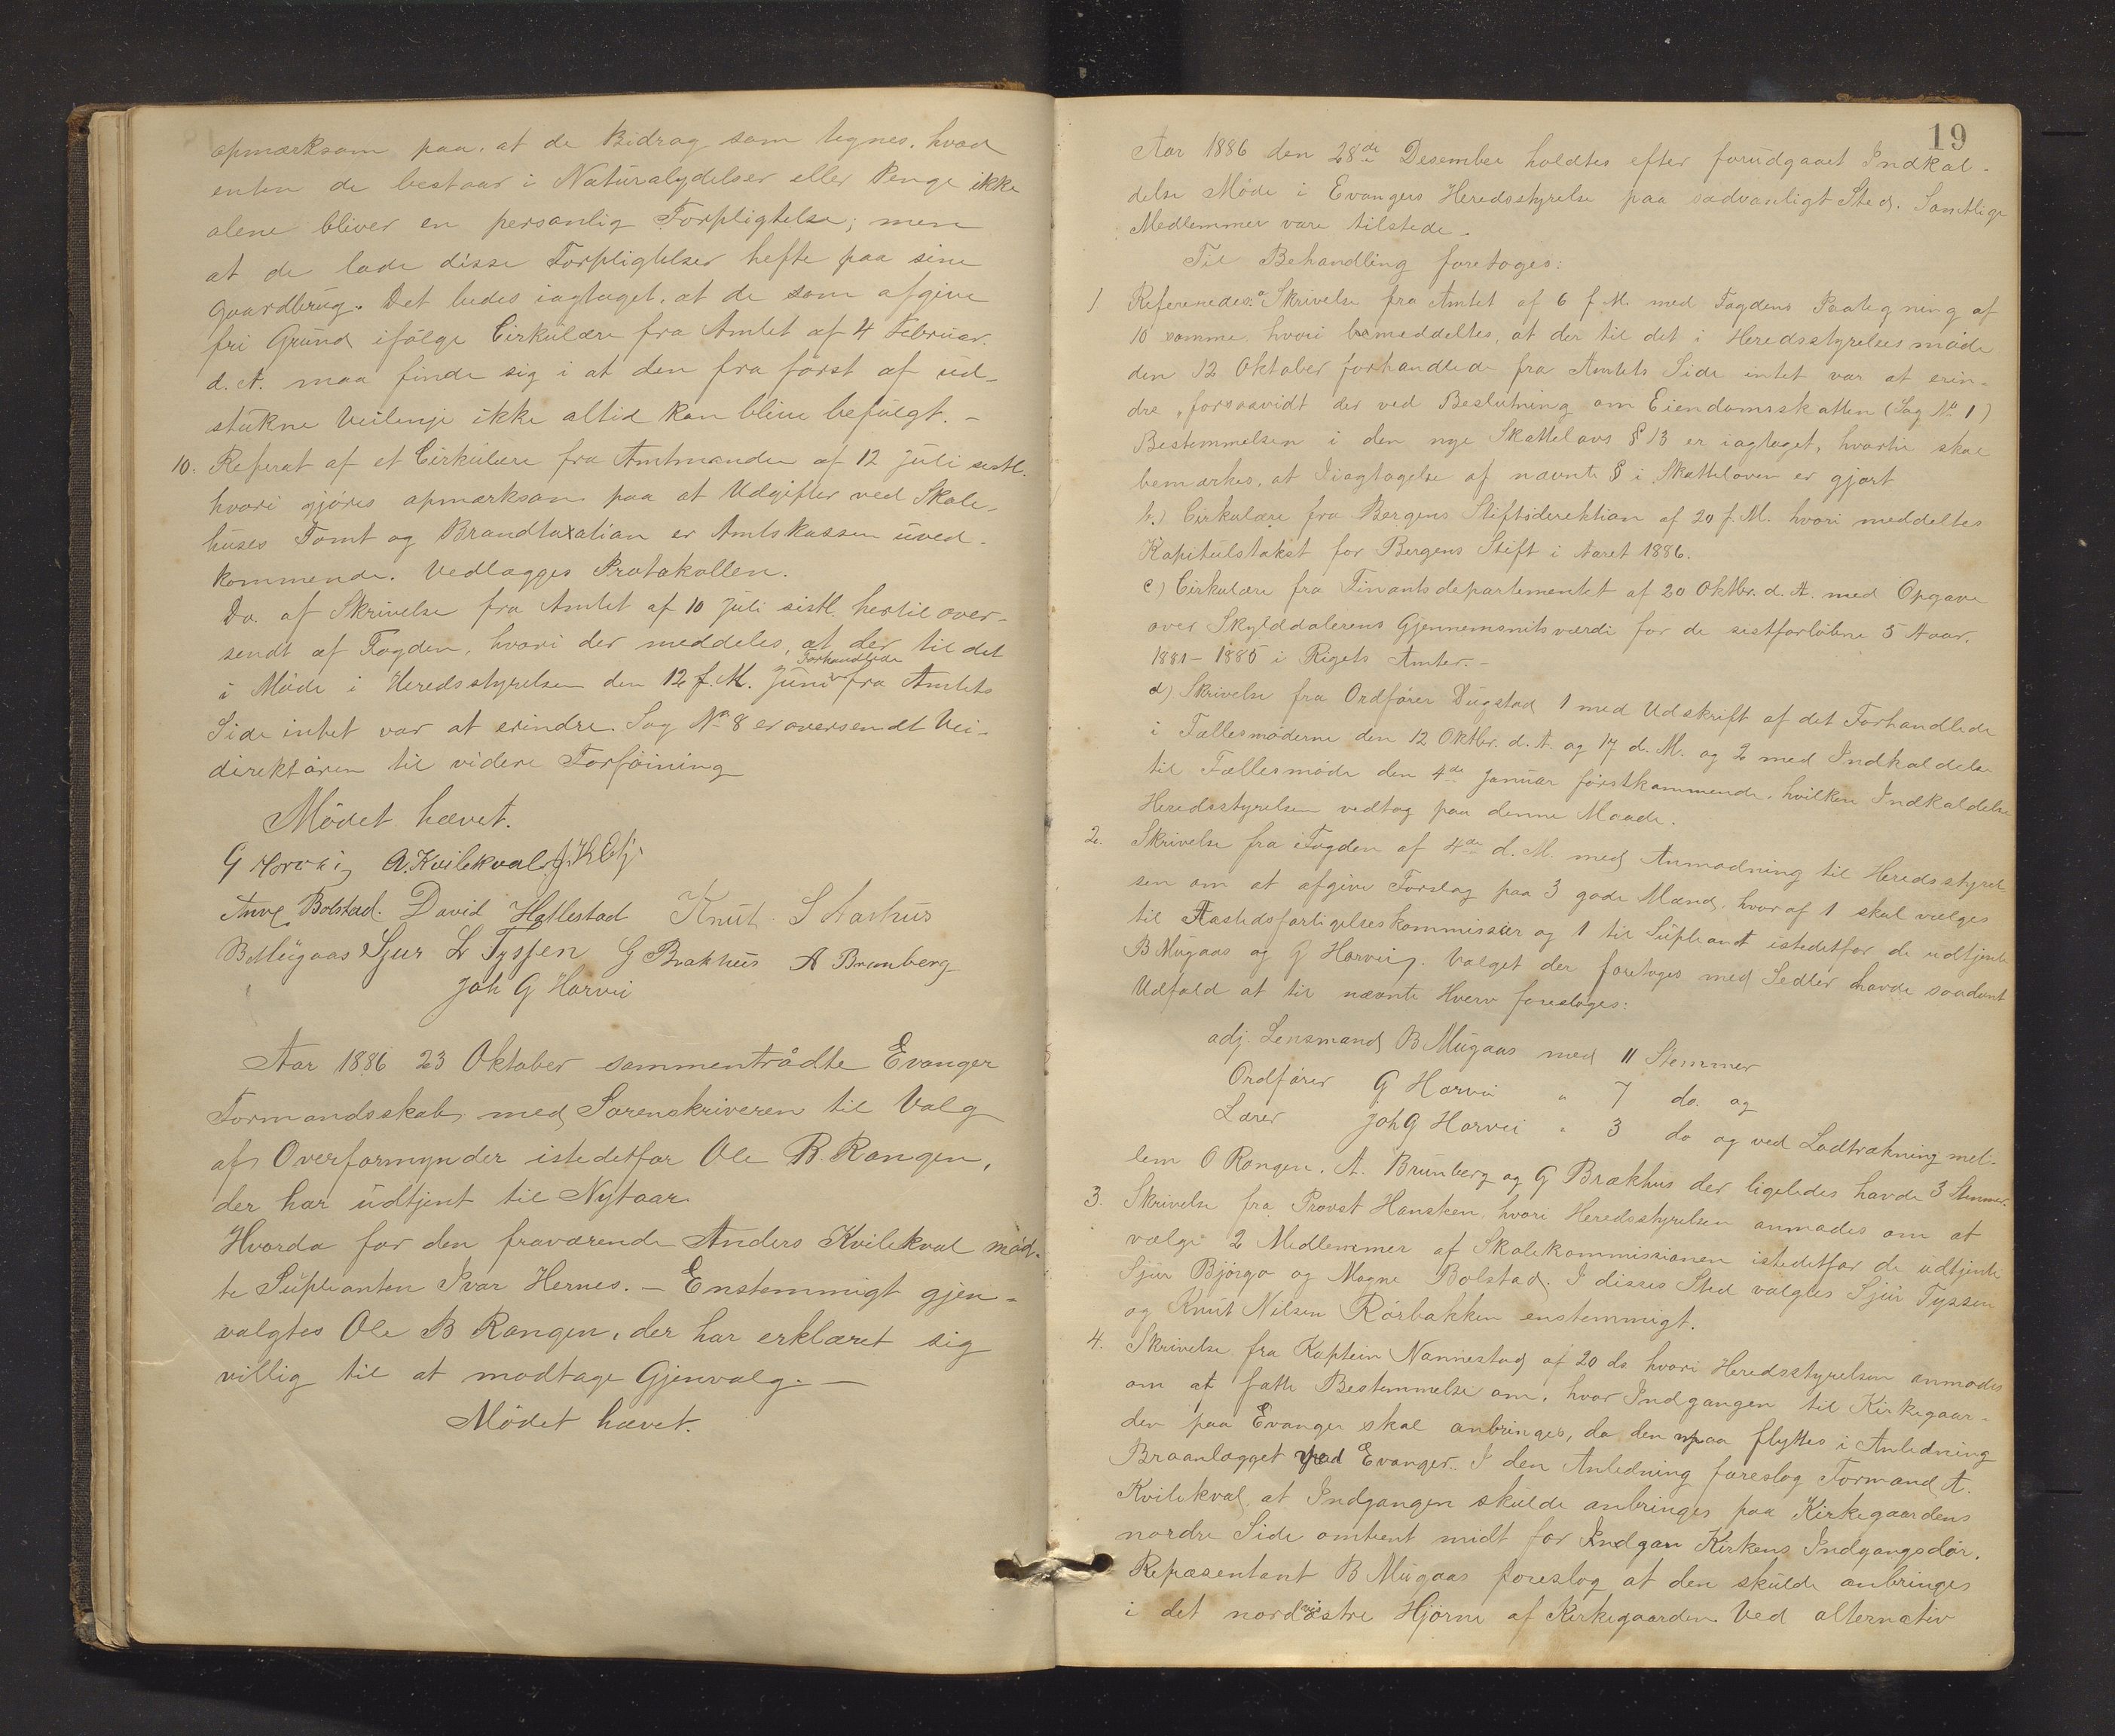 opmærksom paa, at de Bidrag som tegnes, hvad
enten de bestaar i Naturalydelser eller Penge ikke
alene bliver en personlig Forpligtelse; men
at de lade disse Forpligtelser hefte paa sine
gaardbrug. Det ledes iagtaget, at de som afgive
fri Grund ifølge Cirkulære fra Amtet af 4 Februar
d. A. maa finde sig i at den fra først af ud-
stukne Veilinje ikke altid kan blive befulgt. -
10. Referat af et Cirkulære fra Amtmanden af 12 Juli sistl.
hvori gjøres opmærksom paa at Udgifter ved Skole-
huses Tomt og Brandtaxation er Amtskassen uved-
kommende. Vedlægges Protokollen.
Do. af Skrivelse fra Amtet af 10 Juli sistl. hertil over-
sendt af Fogden, hvori der meddeles, at der til det
i Møde i Heredsstyrelsen den 12 f. M. Juni Forhandlede fra Amtets
Side intet var at erindre Sag No 8 er oversendt Vei-
direktøren til videre Forføining
Mødet hævet.
G Horvei A. Kvilekval
Bolstad. David Hallestad Knut S Aarhus
B Mügaas Sjur L Tyssen G Brakhus A Brunberg
Joh G Horvei
Aar 1886 23 Oktober sammentrådte Evanger
Formandsskab med Sorenskriveren til Valg
af Overformynder istedetfor Ole B. Rongen,
der har udtjent til Nytaar.
Hvorda for den fraværende Anders Kvilekval mød-
te Supleanten Ivar Hernes. - Enstemmigt gjen-
valgtes Ole B Rongen, der har erklæret sig
villig til at modtage Gjenvalg. -
Mødet hævet.
19
Aar 1886 den 28de Desember holdtes efter forudgaaet Indkal-
delse Møde i Evangers Heredsstyrelse paa sædvanligt Sted. Samtlige
Medlemmer vare tilstede.
Til Behandling foretoges:
1 Refereredes: a Skrivelse fra Amtet af 6 f. M. med Fogdens Paategning af
10 samme hvori meddeltes, at der til det i Heredsstyrelsesmøde
den 12 Oktober forhandlede fra Amtets Side intet var at erin-
dre, forsaavidt der ved Beslutning om Eiendomsskatten (Sag No 1)
Bestemmelsen i den nye Skattelovs § 13 er iagtaget, hvortil skal
bemærkes, at Iagtagelse af nævnte § i Skatteloven er gjort
b.) Cirkulære fra Bergens Stiftsdirektion af 20 f. M. hvori meddeltes
Kapitulstakst for Bergens Stift i Aaret 1886.
c) Cirkulære fra Finantsdepartementet af 20 Oktbr. d. A. med Opgave
over Skylddalerens Gjennemsnitsværdi for de sistforløbne 5 Aar.
1881 - 1885 i Rigets Amter. -
d) Skrivelse fra Ordfører Dugstad 1 med Udskrift af det Forhandlede
i Fællesmøderne den 12 Oktbr. d. A. og 17 d. M. og 2 med Indkaldelse
til Fællesmøde den 4de Januar førstkommende, hvilken Indkaldelse
Heredsstyrelsen vedtog paa denne Maade.
2. Skrivelse fra Fogden af 4de d. M. med Anmodning til Heredsstyrel-
sen om at afgive Forslag paa 3 gode Mænd, hvoraf 1 skal vælges
til Aastedsfartigelseskommissær og 1 til Supleant istedetfor de udtjente
B Mügaas og G Horvei. Valget der foretoges med Sedler havde saadant
Udfald at til nævnte Hverv foresloges:
adj. Lensmand B Mügaas med 11 Stemmer
Ordfører G Horvei " 7 do. og
Lærer Joh G Horvei " 3 do og ved Lodtrækning mel-
lem O Rongen, A. Brunberg og G Brækhus der ligeledes havde 3 Stemmer.
3. Skrivelse fra Provst Hansken hvori Heredsstyrelsen anmodes om at
vælge 2 Medlemmer af Skolekommissionen istedetfor de udtjente
Sjur Bjørgo og Magne Bolstad. I disses Sted valgtes Sjur Tyssen
og Knut Nilsen Rørbakken enstemmigt.
4. Skrivelse fra Kaptein Nannestad af 20 ds hvori Heredsstyrelsen anmodes
om at fatte Bestemmelse om, hvor Indgangen til Kirkegaar-
den paa Evanger skal anbringes, da den maa flyttes i Anledning
Broanlægget ved Evanger. I den Anledning foreslog Formand A.
Kvilekval at Indgangen skulde anbringes paa Kirkegaardens
nordre Side omtrent midt for Indgan Kirkens Indgangsdør.
Repæsentant B Mügaas foreslog at den skulde anbringes
i det nordvestre Hjørne af Kirkegaarden Ved alternativ